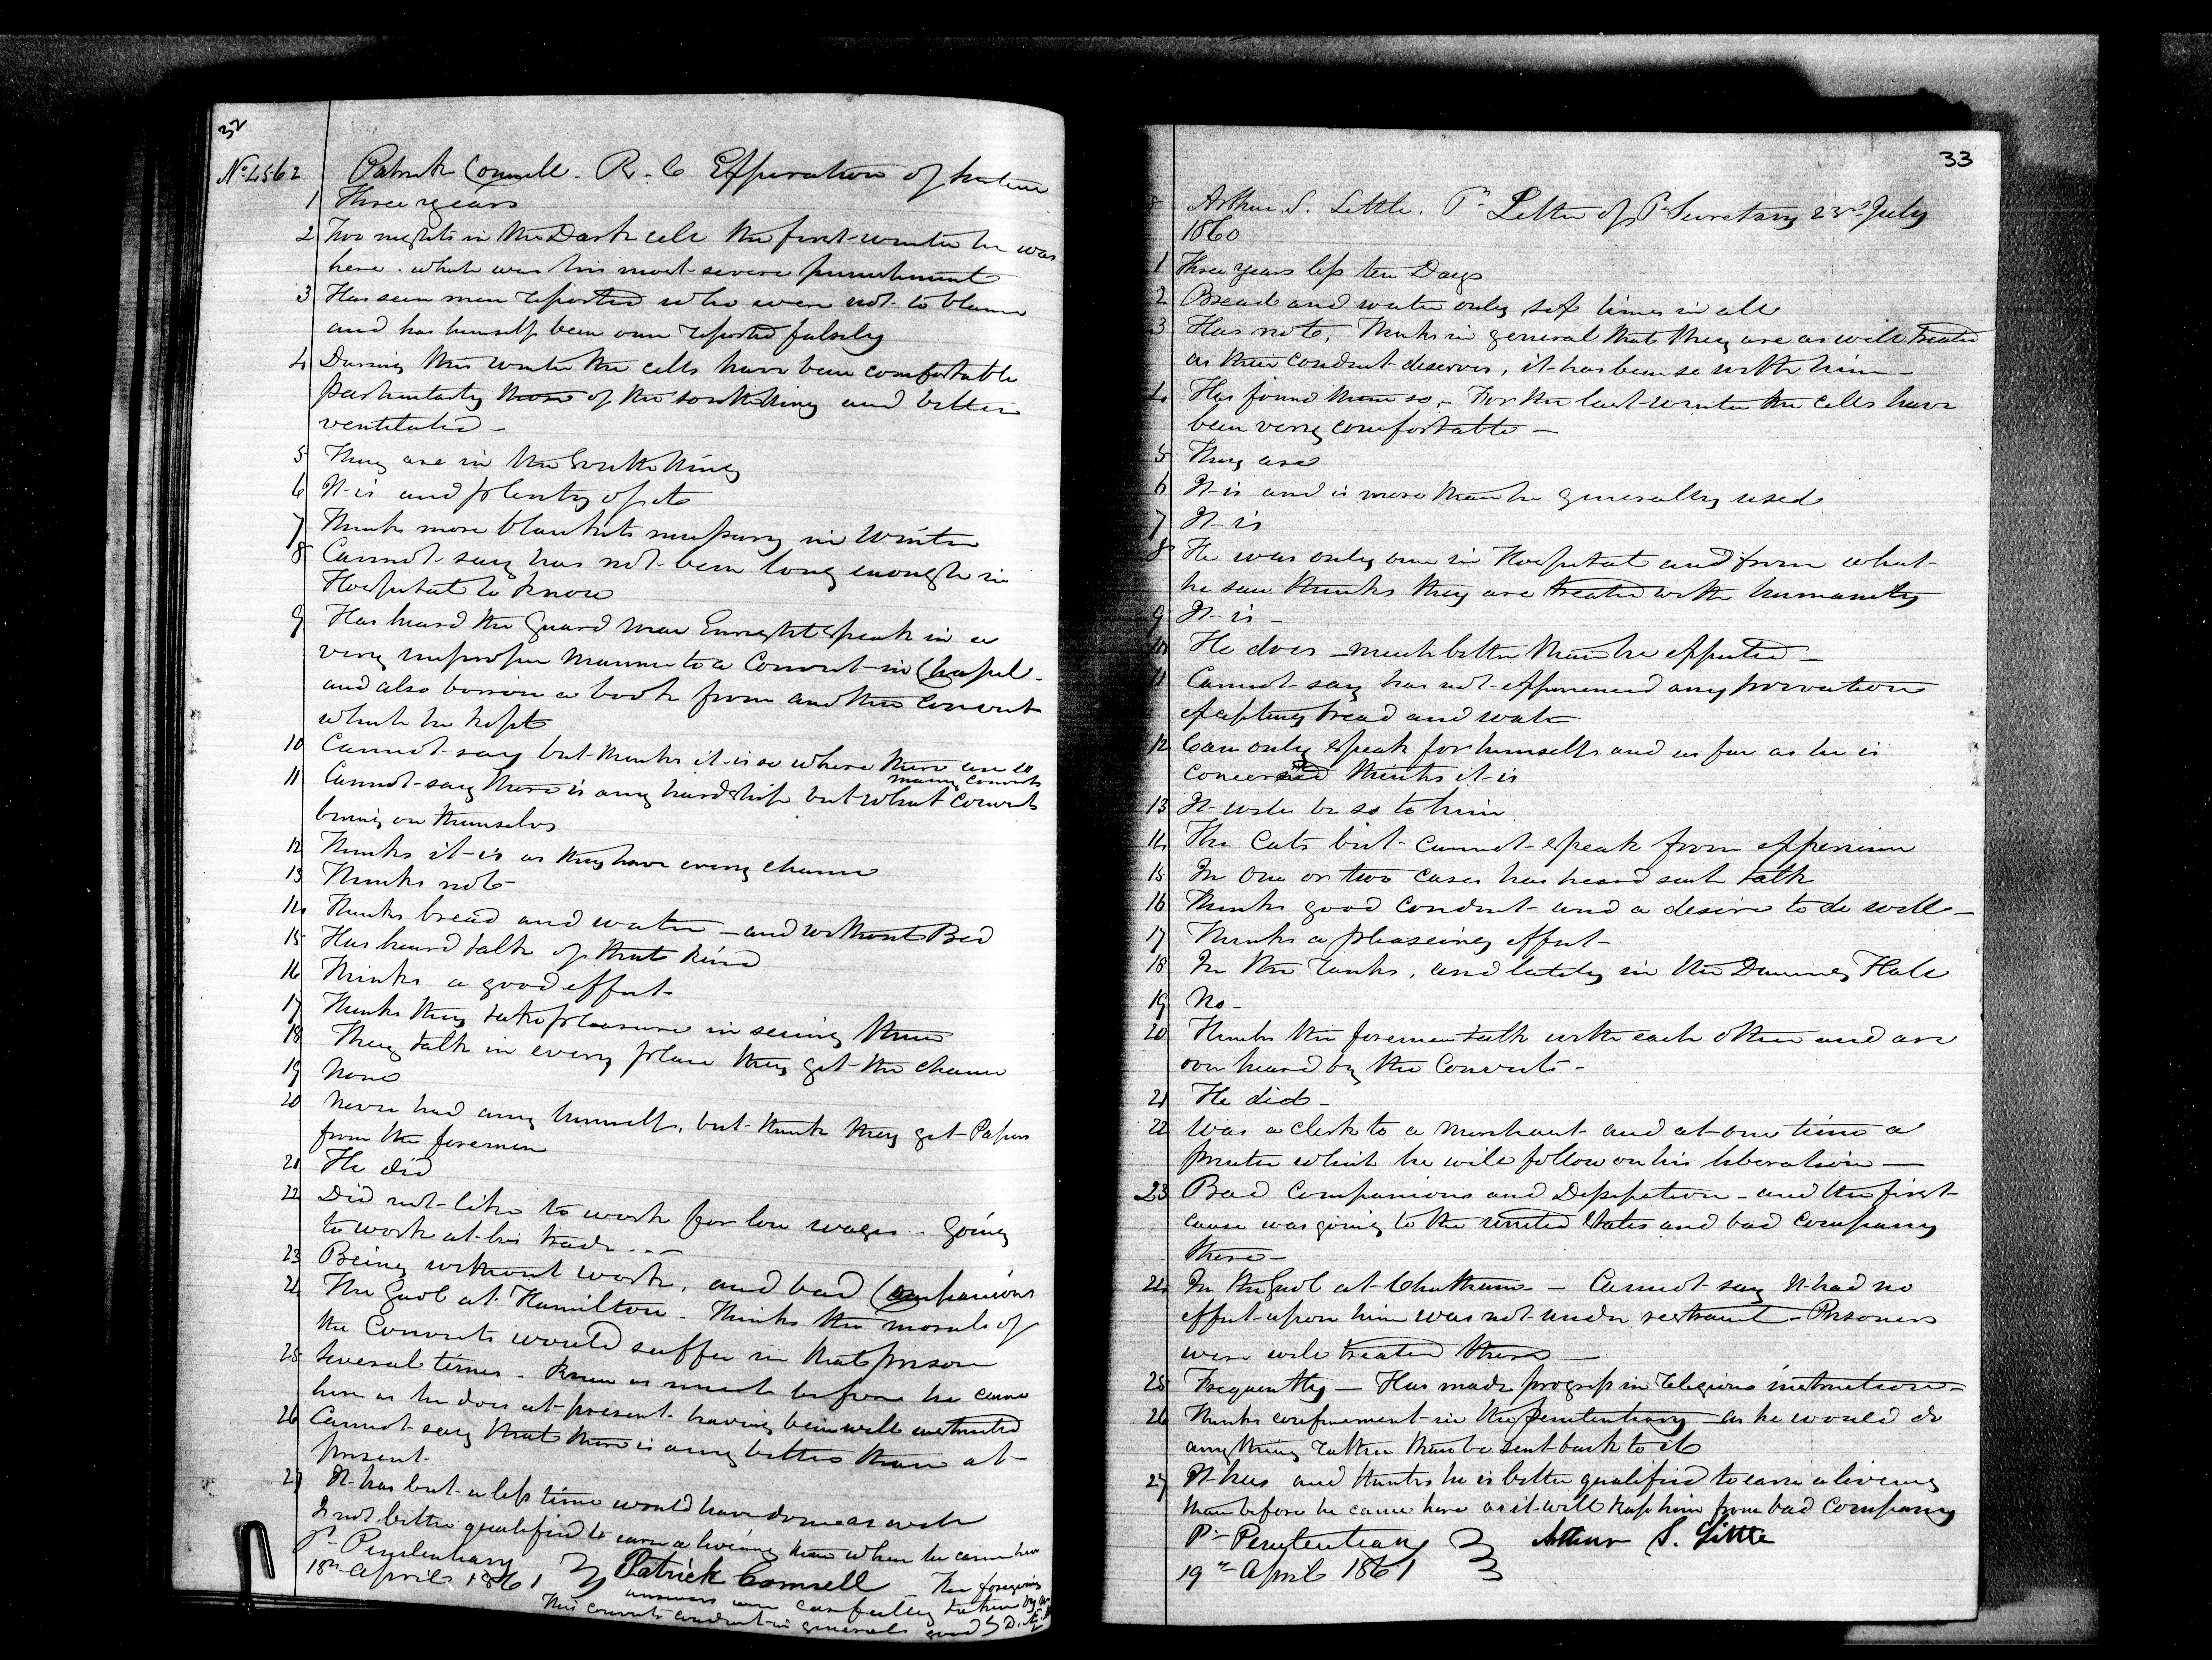 32
No. 4562 Patrick Connell. R. C Expiration of sentence
1 Three years
2 Two nights in the Dark cell the first winter he was
here. which was his most severe punishment
3 Has seen men reported who were not to blame
and has himself been once reported falsely
4 During this winter the cells have been comfortable
particularly those of the South Wing and better
ventilated -
5 They are in the South Wing
6 It is and plenty of it
7 Thinks more blankets necessary in winter
8 Cannot say has not been long enough in
Hospital to know
9 Has heard the Guard Mac Enright speak in a
very improper manner to a Convict in Chapel -
and also borrow a book from another Convict
which he kept
10 Cannot say but thinks it is so where there are so
many convicts
11 Cannot say there is any hardship but what convicts
bring on themselves
12 Thinks it is as they have every chance
13 Thinks not
14 Thinks bread and water - and without Bed
15 Has heard talk of that kind
16 Thinks a good effect -
17 Thinks they take pleasure in seeing them
18 They talk in every place they get the chance
19 None
20 Never had any himself, but thinks they get Papers
from the foremen
21 He did
22 Did not like to work for low wages .. going
to work at his trade ... -
23 Being without work, and bad Companions
24 The Gaol at Hamilton - Thinks the morals of
the Convicts would suffer in that prison
25 Several times - Knew as much before he came
here as he does at present having been well instructed
26 Cannot say that there is any better than at
present -
27 It has but a less time would have done as well
Is not better qualified to earn a living than when he came here
Pl. Penitentiary
18th April 1861 } Patrick Connell - The foregoing
answers were carefully taken by me
This convicts conduct in general good } D. Æ. M
33
8 Arthur S. Little. Pr. Letter of P. Secretary 23d July
1860
1 Three years less ten Days
2 Bread and water only six times in all
3 Has not, Thinks in general that they are as well treated
as their conduct deserves, it has been so with him -
4 Has found them so - For the last winter the cells have
been very comfortable -
5 They are
6 It is and is more than he generally used
7 It is
8 He was only once in Hospital and from what
he saw thinks they are treated with humanity
9 It is -
10 He does - much better than he expected -
11 Cannot say has not experienced any privation
excepting bread and water
12 Can only speak for himself and as far as he is
concerned thinks it is
13 It will be so to him
14 The Cats but cannot speak from experience
15 In one or two cases has heard such talk
16 Thinks good conduct and a desire to do well -
17 Thinks a pleaseing effect -
18 In the ranks, and lately in the Dining Hall
19 No -
20 Thinks the foremen talk with each other and are
over heard by the Convicts -
21 He did -
22 Was a clerk to a merchant and at one time a
printer which he will follow on his liberation -
23 Bad Companions and Dissipation - and the first
cause was going to the united states and bad company
there -
24 In the Gaol at Chatham - Cannot say It had no
effect upon him was not under restraint - Prisoners
were well treated there -
25 Frequently - Has made progress in religious instruction -
26 Thinks confinement in the penitentiary - as he would do
any thing rather than be sent back to it
27 It has and thinks he is better qualified to earn a living
than before he came here as it will keep him from bad company
Pl. Penitentiary } Arthur S. Little
19th April 1861